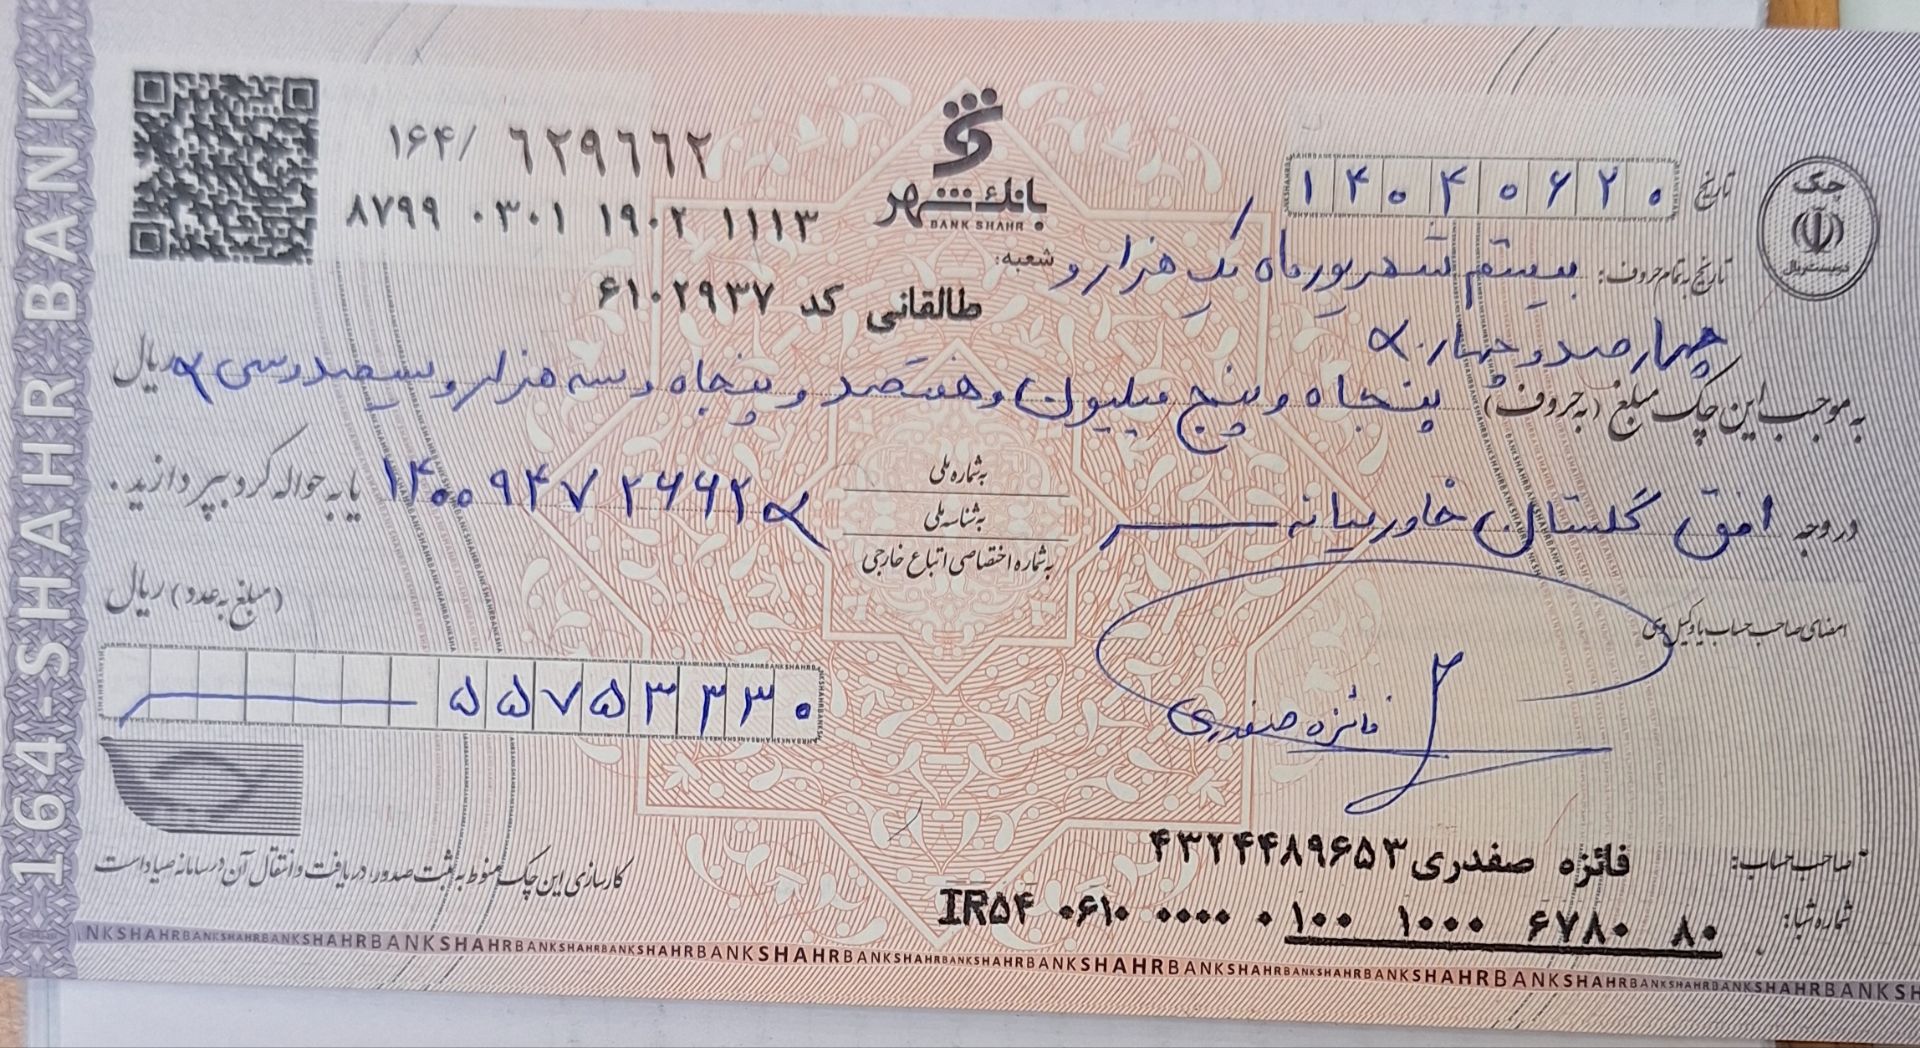 164-SHAHR BANK
۱۶۴/ ۶۲۹۶۶۲
۸۷۹۹ ۰۳۰۱ ۱۹۰۲ ۱۱۱۳
بانك شهر
BANK SHAHR
چک
دویست ریال
تاریخ ۱۴۰۴۰۶۲۰
تاریخ به تمام حروف: بیستم شهریور ماه یک هزار و
شعبه:
طالقانی کد ۶۱۰۲۹۳۷
چهارصد و چهار
به موجب این چک مبلغ (به حروف) پنجاه و پنج میلیون و هفتصد و پنجاه و سه هزار و سیصد و سی ریال
در وجه افق گلستان خاورمیانه
به شماره ملی
به شناسه ملی
به شماره اختصاصی اتباع خارجی
۱۴۰۰۹۴۷۲۶۶۲ یا به حواله کرد بپردازید.
(مبلغ به عدد) ریال
۵۵۷۵۳۳۳۰
امضای صاحب حساب یا وکیل وی
فائزه صفدری
صاحب حساب: فائزه صفدری ۴۳۲۴۴۸۹۶۵۳
شماره شبا: IR۵۴ ۰۶۱۰ ۰۰۰۰ ۰۱۰۰ ۱۰۰۰ ۶۷۸۰ ۸۰
کارسازی این چک منوط به ثبت صدور، دریافت و انتقال آن در سامانه صیاد است
SHAHRBANKSHAHRBANKSHAHRBANKSHAHRBANK